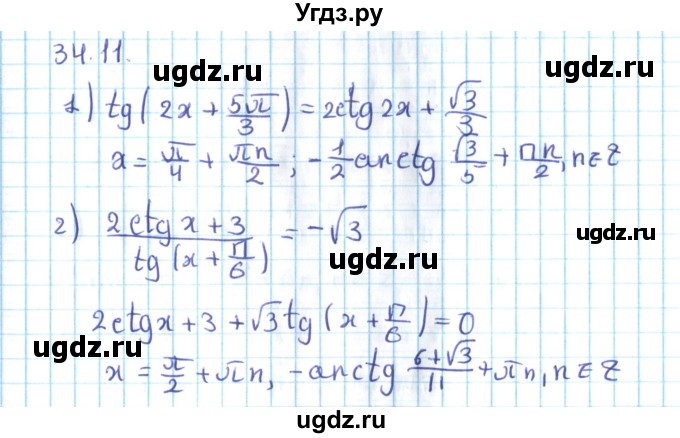 Угдз.ру
34.11.
ugdz.ru ugdz.ru
1) tg(2x + 5π/3) = 2ctg2x + √3/3
x = π/4 + πn/2; -1/2 arctg √3/5 + πn/2, n ∈ Z
2) (2ctgx + 3)/(tg(x + π/6)) = -√3
ugdz.ru
2ctgx + 3 + √3tg(x + π/6) = 0
ugdz.ru ugdz.ru
x = π/2 + πn, -arctg (6+√3)/11 + πn, n ∈ Z
ugdz.ru